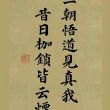 一朝悟道見真我
昔日枷鎖皆云煙